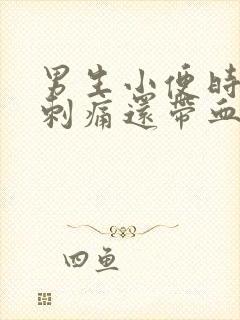 男生小便時
刺痛還帶血
四魚